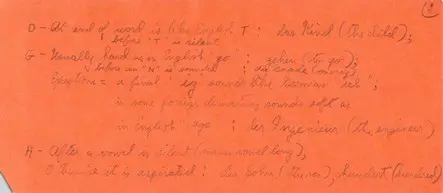 D - At end of word is like English T : das Kind (the child);
before "T" is silent
G - Usually hard as in English "go" ; gehen (to go);
before an "N" is sounded ; die Gnade (mercy)
Exceptions = a final "eg" sounds like German "ich" ;
in some foreign derivations sounds soft as
in English "ego" ; der Ingenieur (the engineer)
H - After a vowel is silent (makes vowel long),
Otherwise it is aspirated : der Sohn (the son), hundert (hundred)